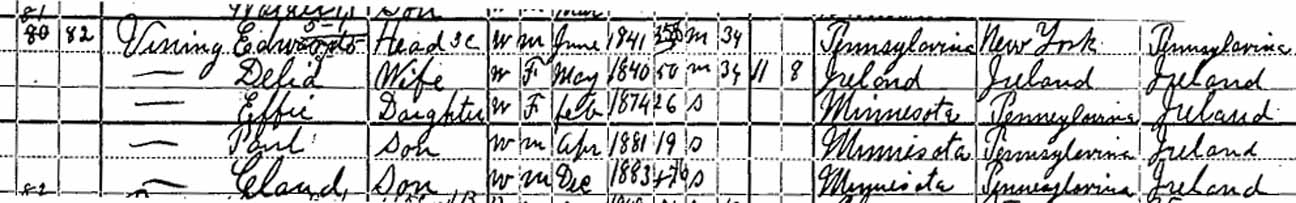 81 Son W M Mar
80 82 Vining Edward S Head W M June 1841 58 M 34 Pennsylovina New York Pennsylovina
— Delia Wife W F May 1840 50 M 34 11 8 Ireland Ireland Ireland
— Effie Daughter W F Feb 1874 26 S Minnesota Pennsylovina Ireland
— Paul Son W M Apr 1881 19 S Minnesota Pennsylovina Ireland
82 — Claud Son W M Dec 1883 16 S Minnesota Pennsylovina Ireland